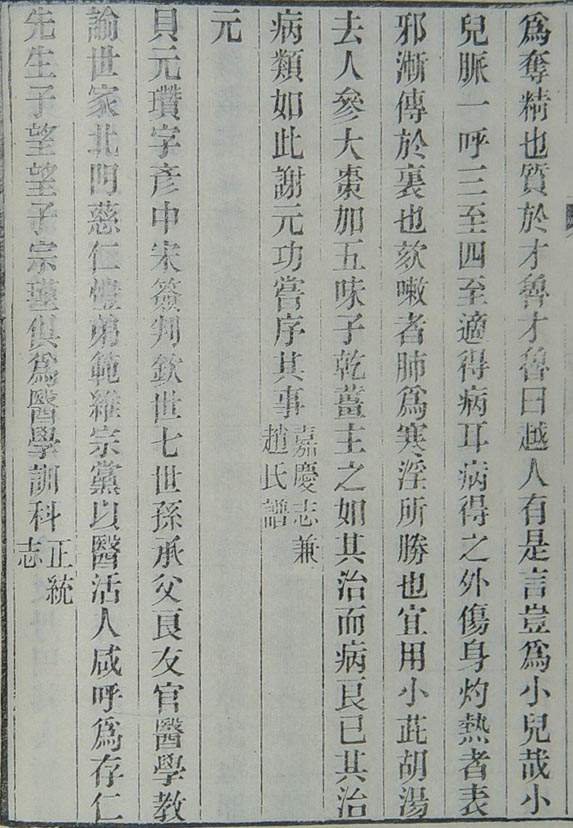 為奪精也質於才魯才魯曰越人有是言豈為小兒哉小
兒脈一呼三至四至適得病耳病得之外傷身灼熱者表
邪漸傳於裏也欬嗽者肺為寒淫所勝也宜用小茈胡湯
去人參大棗加五味子乾薑主之如其治而病良已其治
病類如此謝元功嘗序其事嘉慶志兼
趙氏譜
元
貝元瓚字彥中宋簽判欽世七世孫承父良友官醫學教
諭世家北門慈仁禮第範維宗黨以醫活人咸呼為存仁
先生子望望子宗瑾俱為醫學訓科正統
志